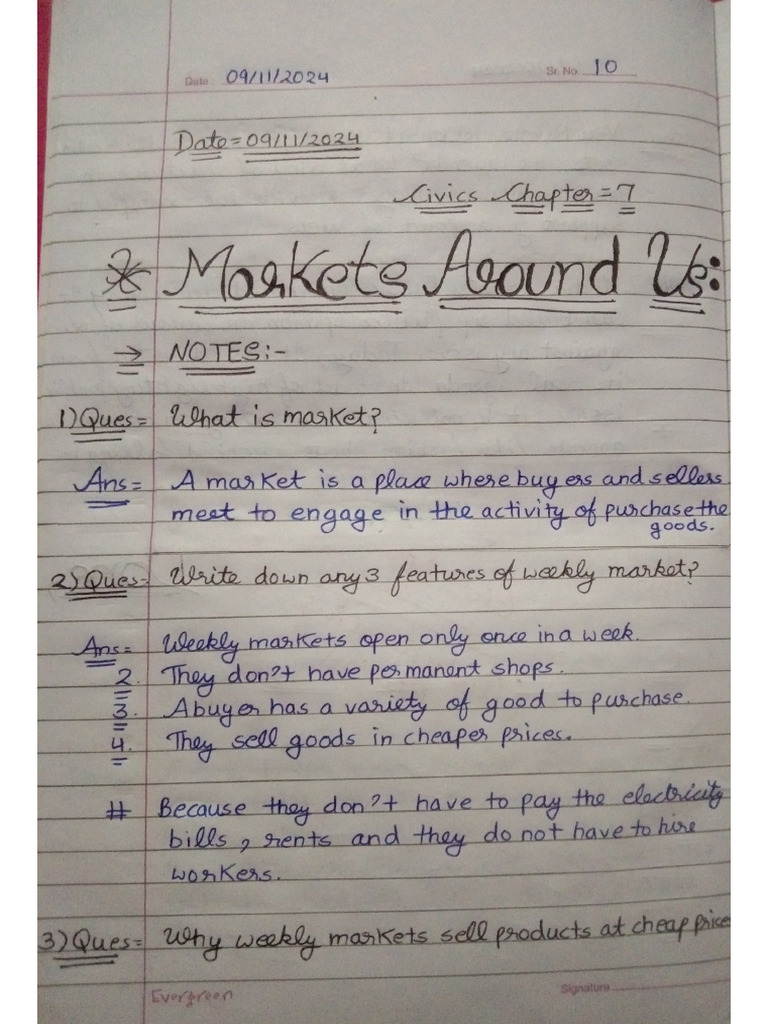 Date 09/11/2024 Sr. No. 10
Date = 09/11/2024
Civics Chapter = 7
* Markets Around Us:
→ NOTES:-
1) Ques = What is market?
Ans = A market is a place where buyers and sellers
meet to engage in the activity of purchase the
goods.
2) Ques = Write down any 3 features of weekly market?
Ans = Weekly markets open only once in a week.
2. They don't have permanent shops.
3. A buyer has a variety of good to purchase.
4. They sell goods in cheaper prices.
# Because they don't have to pay the electricity
bills, rents and they do not have to hire
workers.
3) Ques = Why weekly markets sell products at cheap price
Evergreen Signature